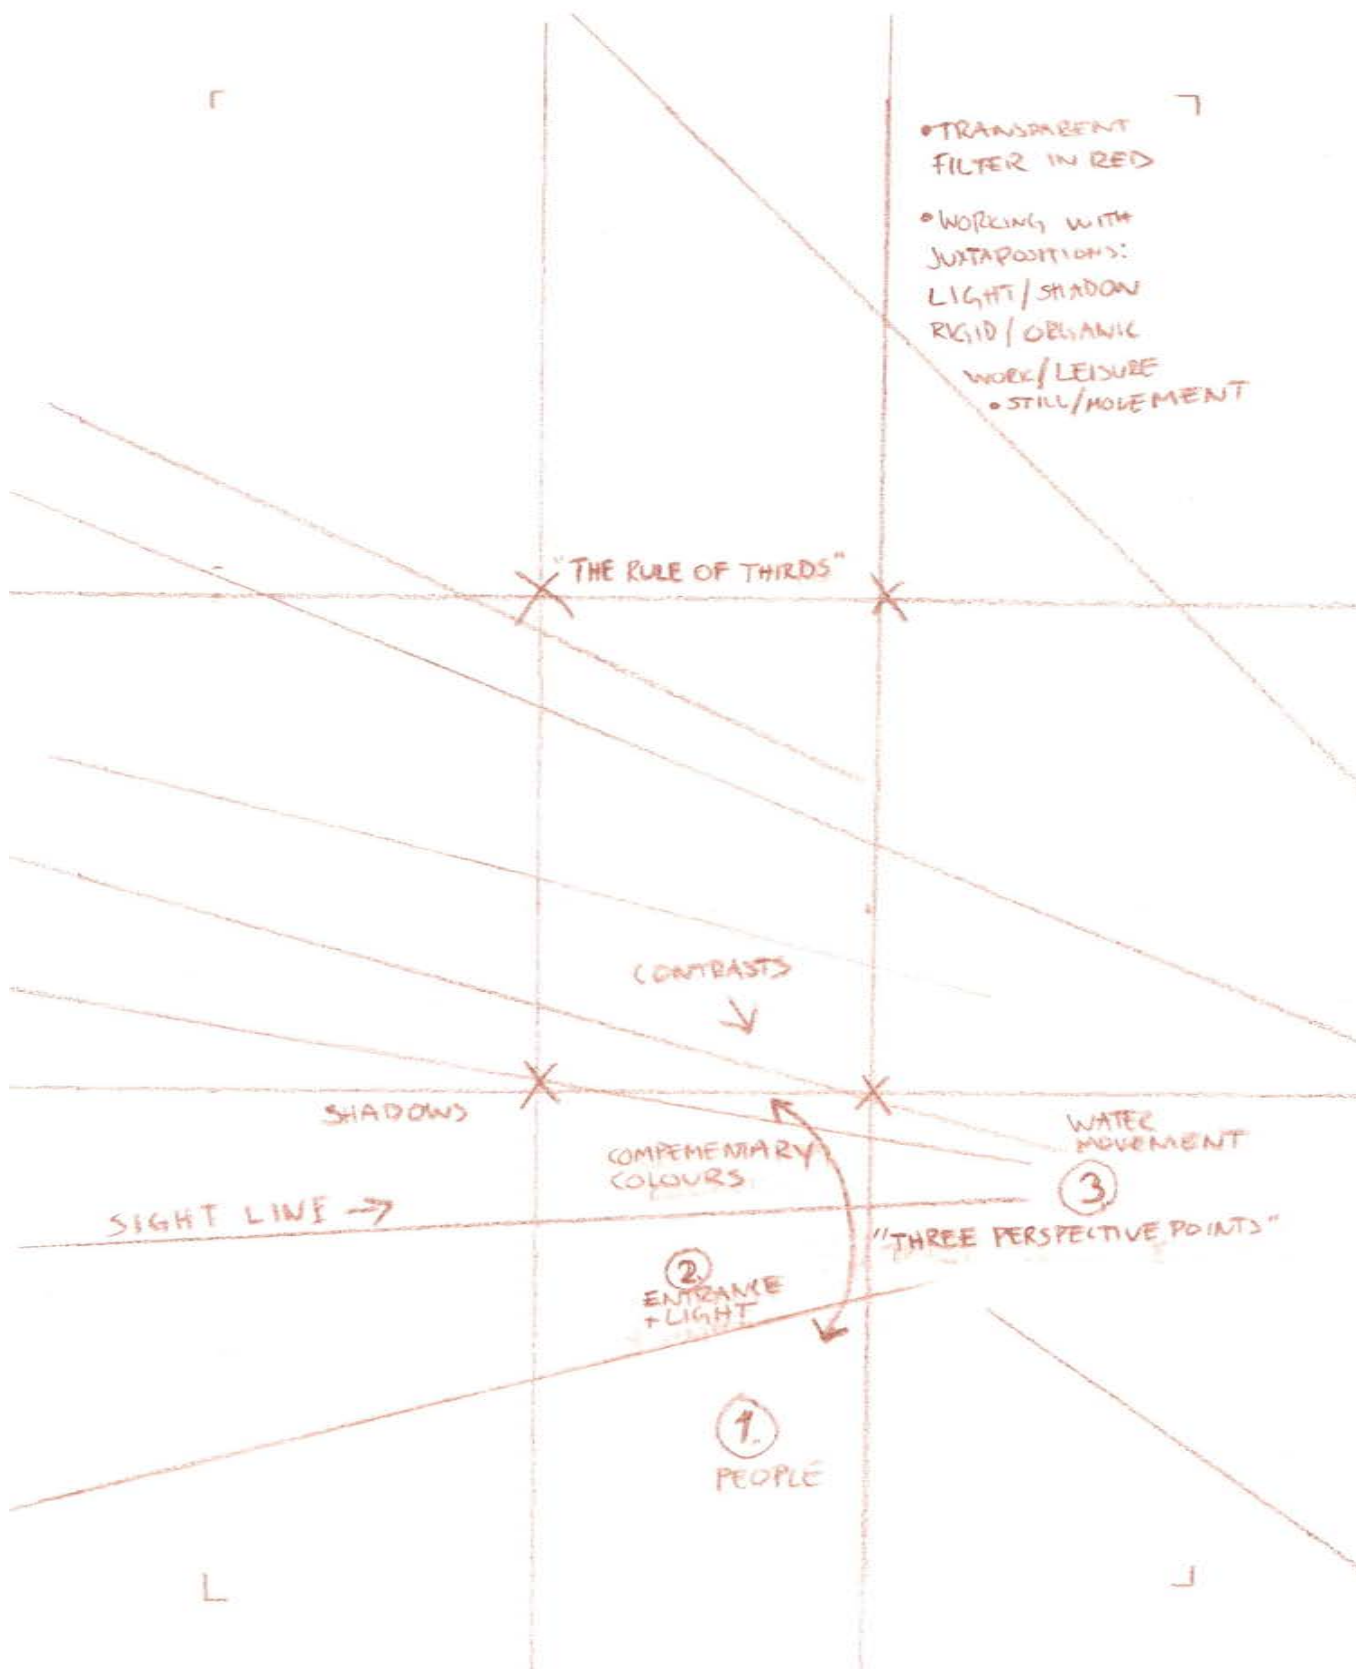 •TRANSPARENT
FILTER IN RED
•WORKING WITH
JUXTAPOSITIONS:
LIGHT/SHADOW
RIGID/ORGANIC
WORK/LEISURE
•STILL/MOVEMENT
"THE RULE OF THIRDS"
CONTRASTS
SHADOWS
WATER
MOVEMENT
COMPEMENTARY
COLOURS
3
SIGHT LINE →
"THREE PERSPECTIVE POINTS"
2.
ENTRANCE
+ LIGHT
1.
PEOPLE